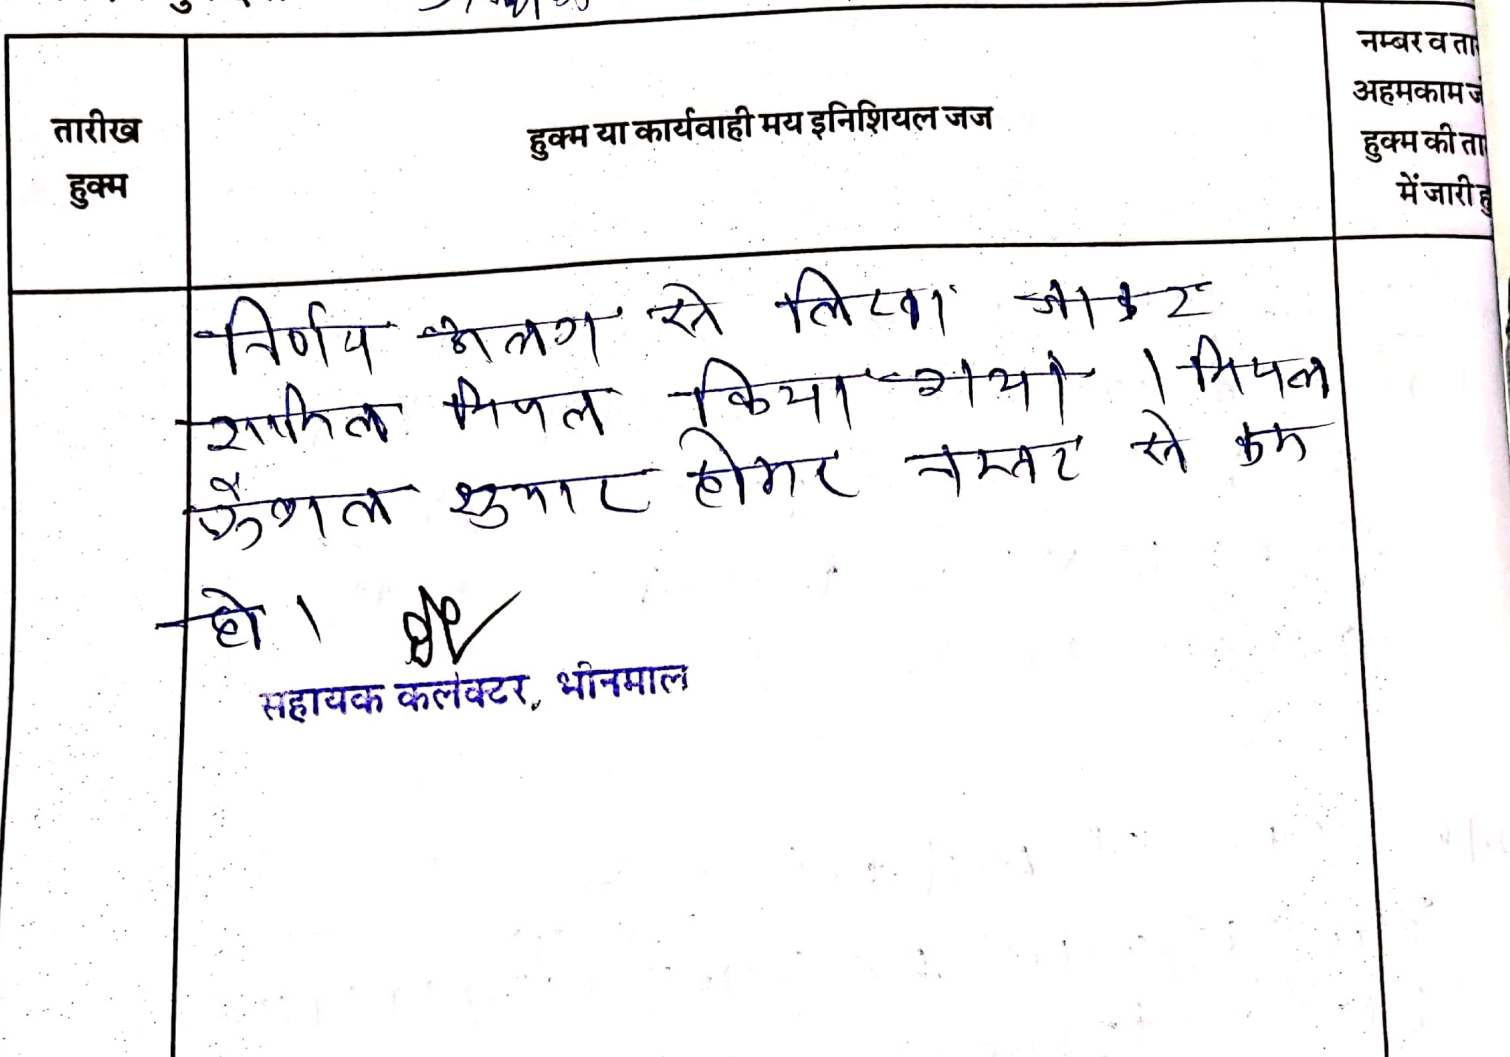 तारीख
हुक्म
हुक्म या कार्यवाही मय इनिशियल जज
नम्बर व ता
अहमकाम ज
हुक्म की ता
में जारी हु
निर्णय अलग से लिखा जाकर
शामिल मिसल किया गया । मिसल
फैसल शुमार होकर नम्बर से कम
हो ।
सहायक कलेक्टर, भीनमाल